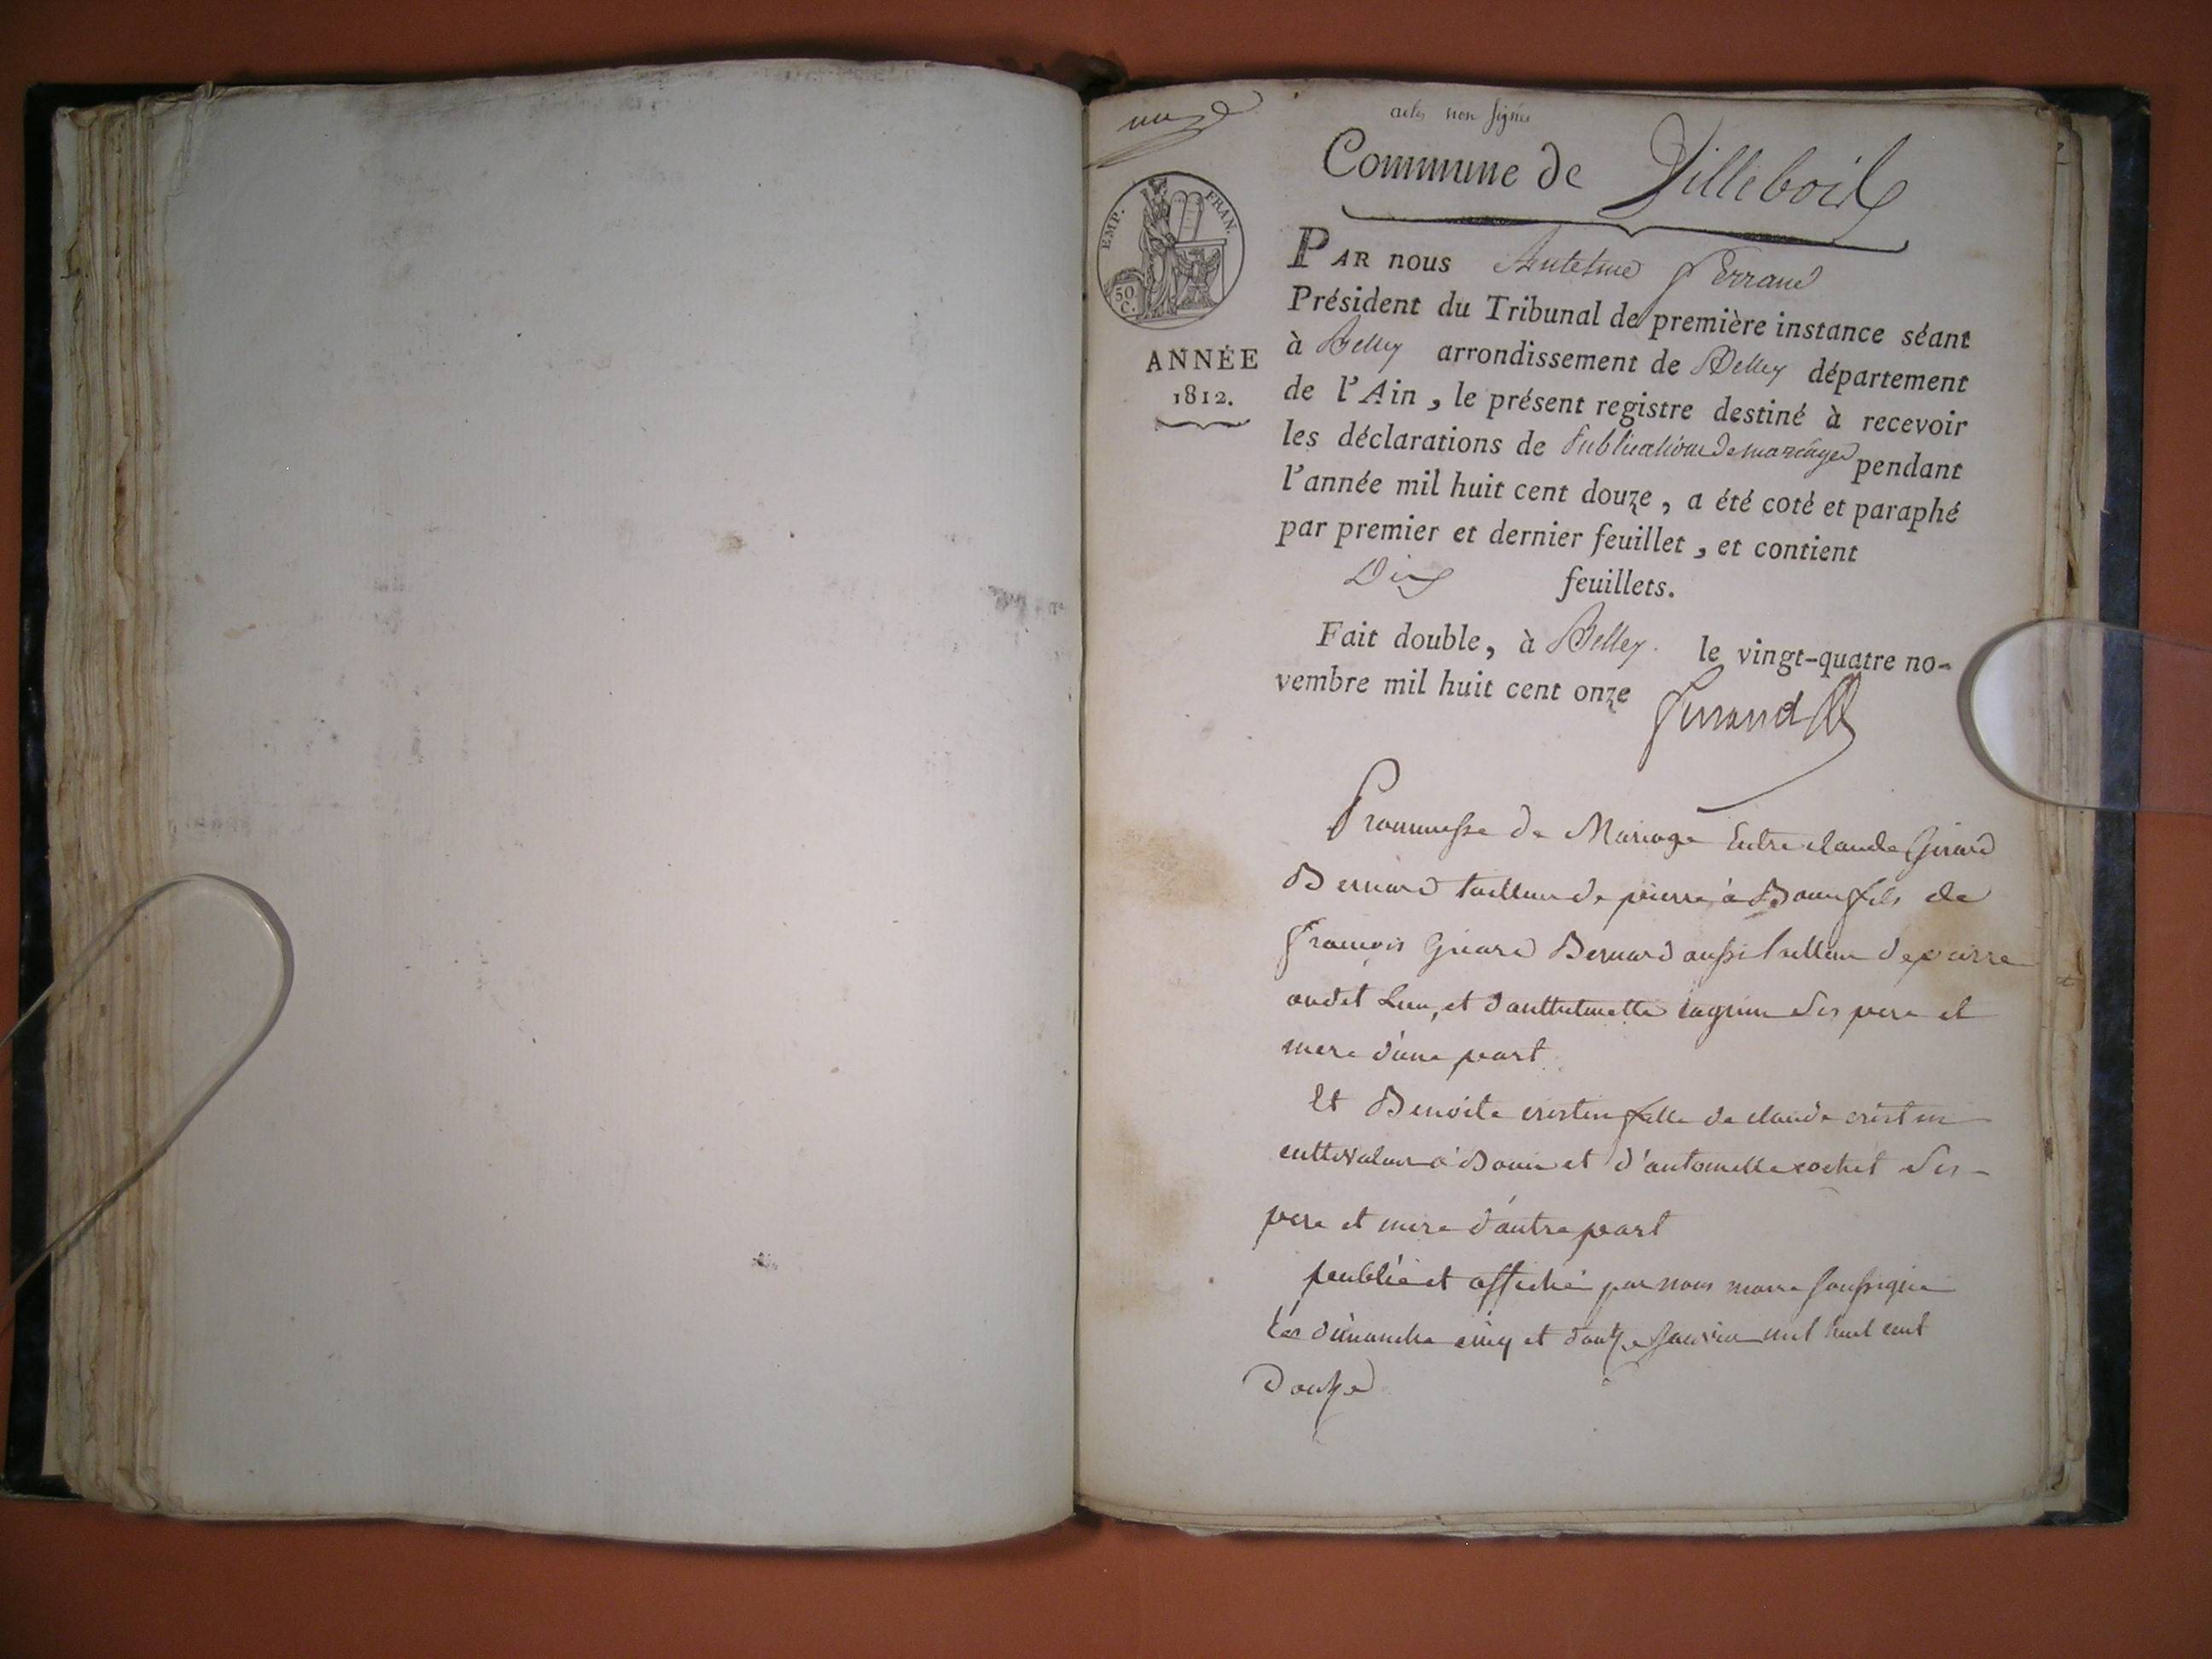 actes non signés
Commune de Villebois
EMP. FRAN.
50
C.
ANNÉE
1812.
PAR nous Antelme Ferrand
Président du Tribunal de première instance séant
à Belley arrondissement de Belley département
de l'Ain, le présent registre destiné à recevoir
les déclarations de Publications de mariages pendant
l'année mil huit cent douze, a été coté et paraphé
par premier et dernier feuillet, et contient
Dix feuillets.
Fait double, à Belley. le vingt-quatre no-
vembre mil huit cent onze
Ferrand
Prommesse de Mariage Entre claude Girard
Bernard tailleur de pierre à Bouis fils de
françois Girard Bernard aussi tailleur de pierre
audit Lieu, et d'anthelmette ses pere et
mere d'une part
Et Benoite cristin fille de claude cristin
cultivateur à Bouis et d'antoinette cochet ses
pere et mere d'autre part
publié et affiché par nous maire soussigné
les dimanche cinq et douze janvier mil huit cent
douze